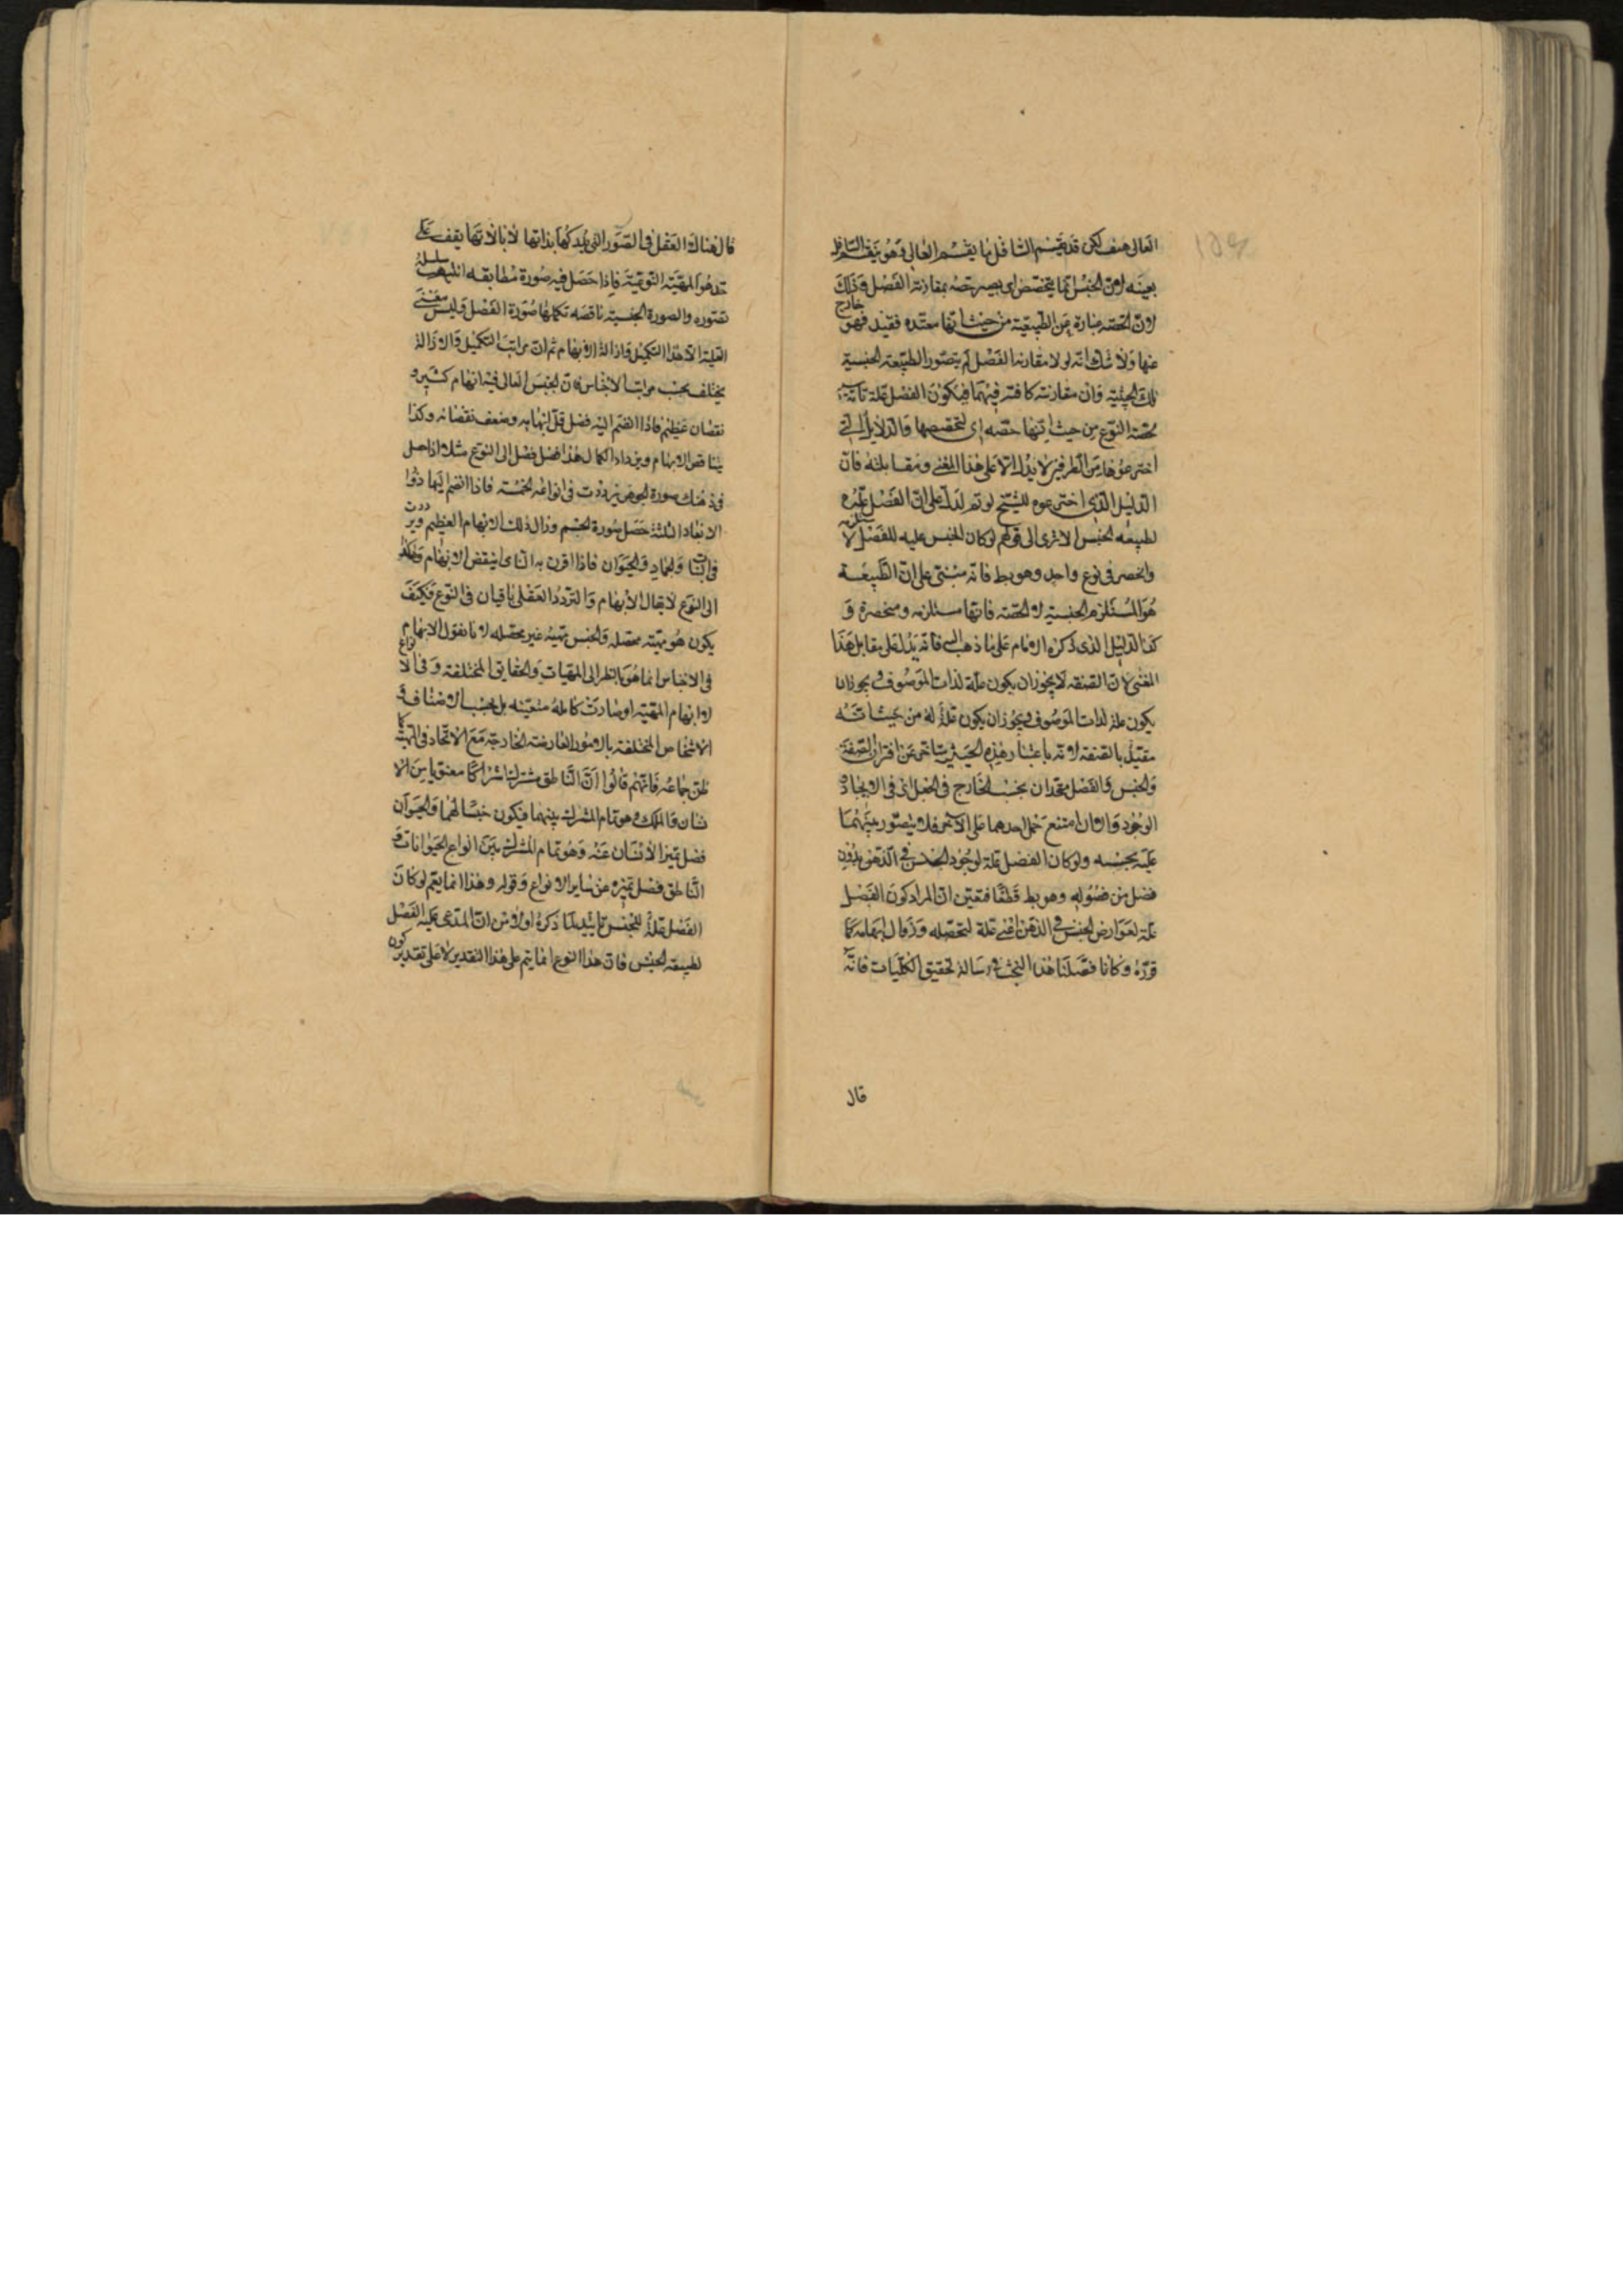 العالى هف لكن قد يقسم السافل ما يقسم العالى وهو يقسم السافل
بعينه لان الجنس انما يتخصص اى يصير حصة بمقارنة الفصل وذلك
لان الحصة عبارة عن الطبيعة من حيث انها مقيدة بقيد فهو خارج
عنها ولا شك انه لولا مقارنة الفصل لم يتصور الطبيعة الجنسية
تلك الحيثية وان مقارنته كافية فيها فيكون الفصل علة
لحصة النوع من حيث انها حصة اى لتخصصها والدلايل التى
اخترعوها من الطرفين لا يدل الا على هذا المعنى ومقابله فان
الدليل الذى اخترعوه للشيخ لو تم لدل على ان الفصل علة
لطبيعة الجنس الا ترى الى قولهم لو كان الجنس علية للفصل لا ستلزمه
وانحصر فى نوع واحد وهو بط فانه مبنى على ان الطبيعة
هو المستلزم الجنسية لا الحصة فانها مستلزمة ومنحصرة و
كذا الدليل الذى ذكره الامام على ما ذهب اليه فانه يدل على مقابل هذا
المعنى لان الصفة لا يجوز ان يكون علة لذات الموصوف ويجوز ان
يكون علة لذات الموصوف ويجوز ان يكون علة له من حيث انه
مقيد بالصفة لانه باعتبار هذه الحيثية متاخر عن اقتران الصفة
والجنس والفصل متحدان بحسب الخارج فى الجعل اى فى الايجاد
الوجود والا لامتنع حمل احدهما على الاخر فلا يتصور بينهما
علية بحسبه ولو كان الفصل علة لوجود الجنس فى الذهن بدون
فصل من فصوله وهو بط قطعا فتعين ان المراد كون الفصل
علة لعوارض الجنس فى الذهن اعنى علة لتحصله وزوال ابهامه كما
قرره وكانا فصلنا هذا البحث فى رسالة تحقيق الكليات فانه
قال
قال هناك العقل فى الصور التى يدركها بذاتها لا بالاتها يقف على
حد هو المهية النوعية فاذا حصل فيه صورة مطابقه انتهت سلسلة
تصوره والصورة الجنسية ناقصه تكملها صورة الفصل وليس معنى
العلية الا هذا التكميل وازالة الابهام ثم ان مراتب التكميل والازالة
يختلف بحسب مراتب الاجناس فان الجنس العالى فيه ابهام كثير و
نقصان عظيم فاذا انضم اليه فصل قل ابهامه وضعف نقصانه وكذا
يتناقص الابهام ويزداد الكمال هذا فصل فصل الى النوع مثلا اذا حصل
فى ذهنك صورة الجوهر ترددت فى انواعه الخمسة فاذا انضم اليها ذو
الابعاد الثلثة حصل صورة الجسم وزال ذلك الابهام العظيم وترددت
فى النبات والجماد والحيوان فاذا اقترن به النامى انتقض الابهام وهكذا
الى النوع لا يقال الابهام والتردد العقلى باقيان فى النوع فكيف
يكون هو مهية محصله والجنس مهية غير محصله لانا نقول الابهام
فى الاجناس انما هو بالنظر الى المهيات والحقايق المختلفة وفى الانواع
لا ابهام المهية اذ صارت كاملة متعينه بل بحسب الاصناف و
الاشخاص المختلفة بالامور العارضة الخارجة مع الاتحاد فى المهية
ظن جماعة فانهم قالوا ان الناطق مشترك اشتراكا معنويا بين الا
نسان والملك وهو تمام المشترك بينهما فيكون جنسا لهما والحيوان
فصل تميز الانسان عنه وهو تمام المشترك بين انواع الحيوانات و
الناطق فصل تميزه عن ساير الانواع وقوله وهذا انما يتم لو كان
الفصل علة للجنس تاييد لما ذكره اولا من ان المدعى علية الفصل
لطبيعة الجنس فان هذا النوع انما يتم على هذا التقدير لا على تقدير كون